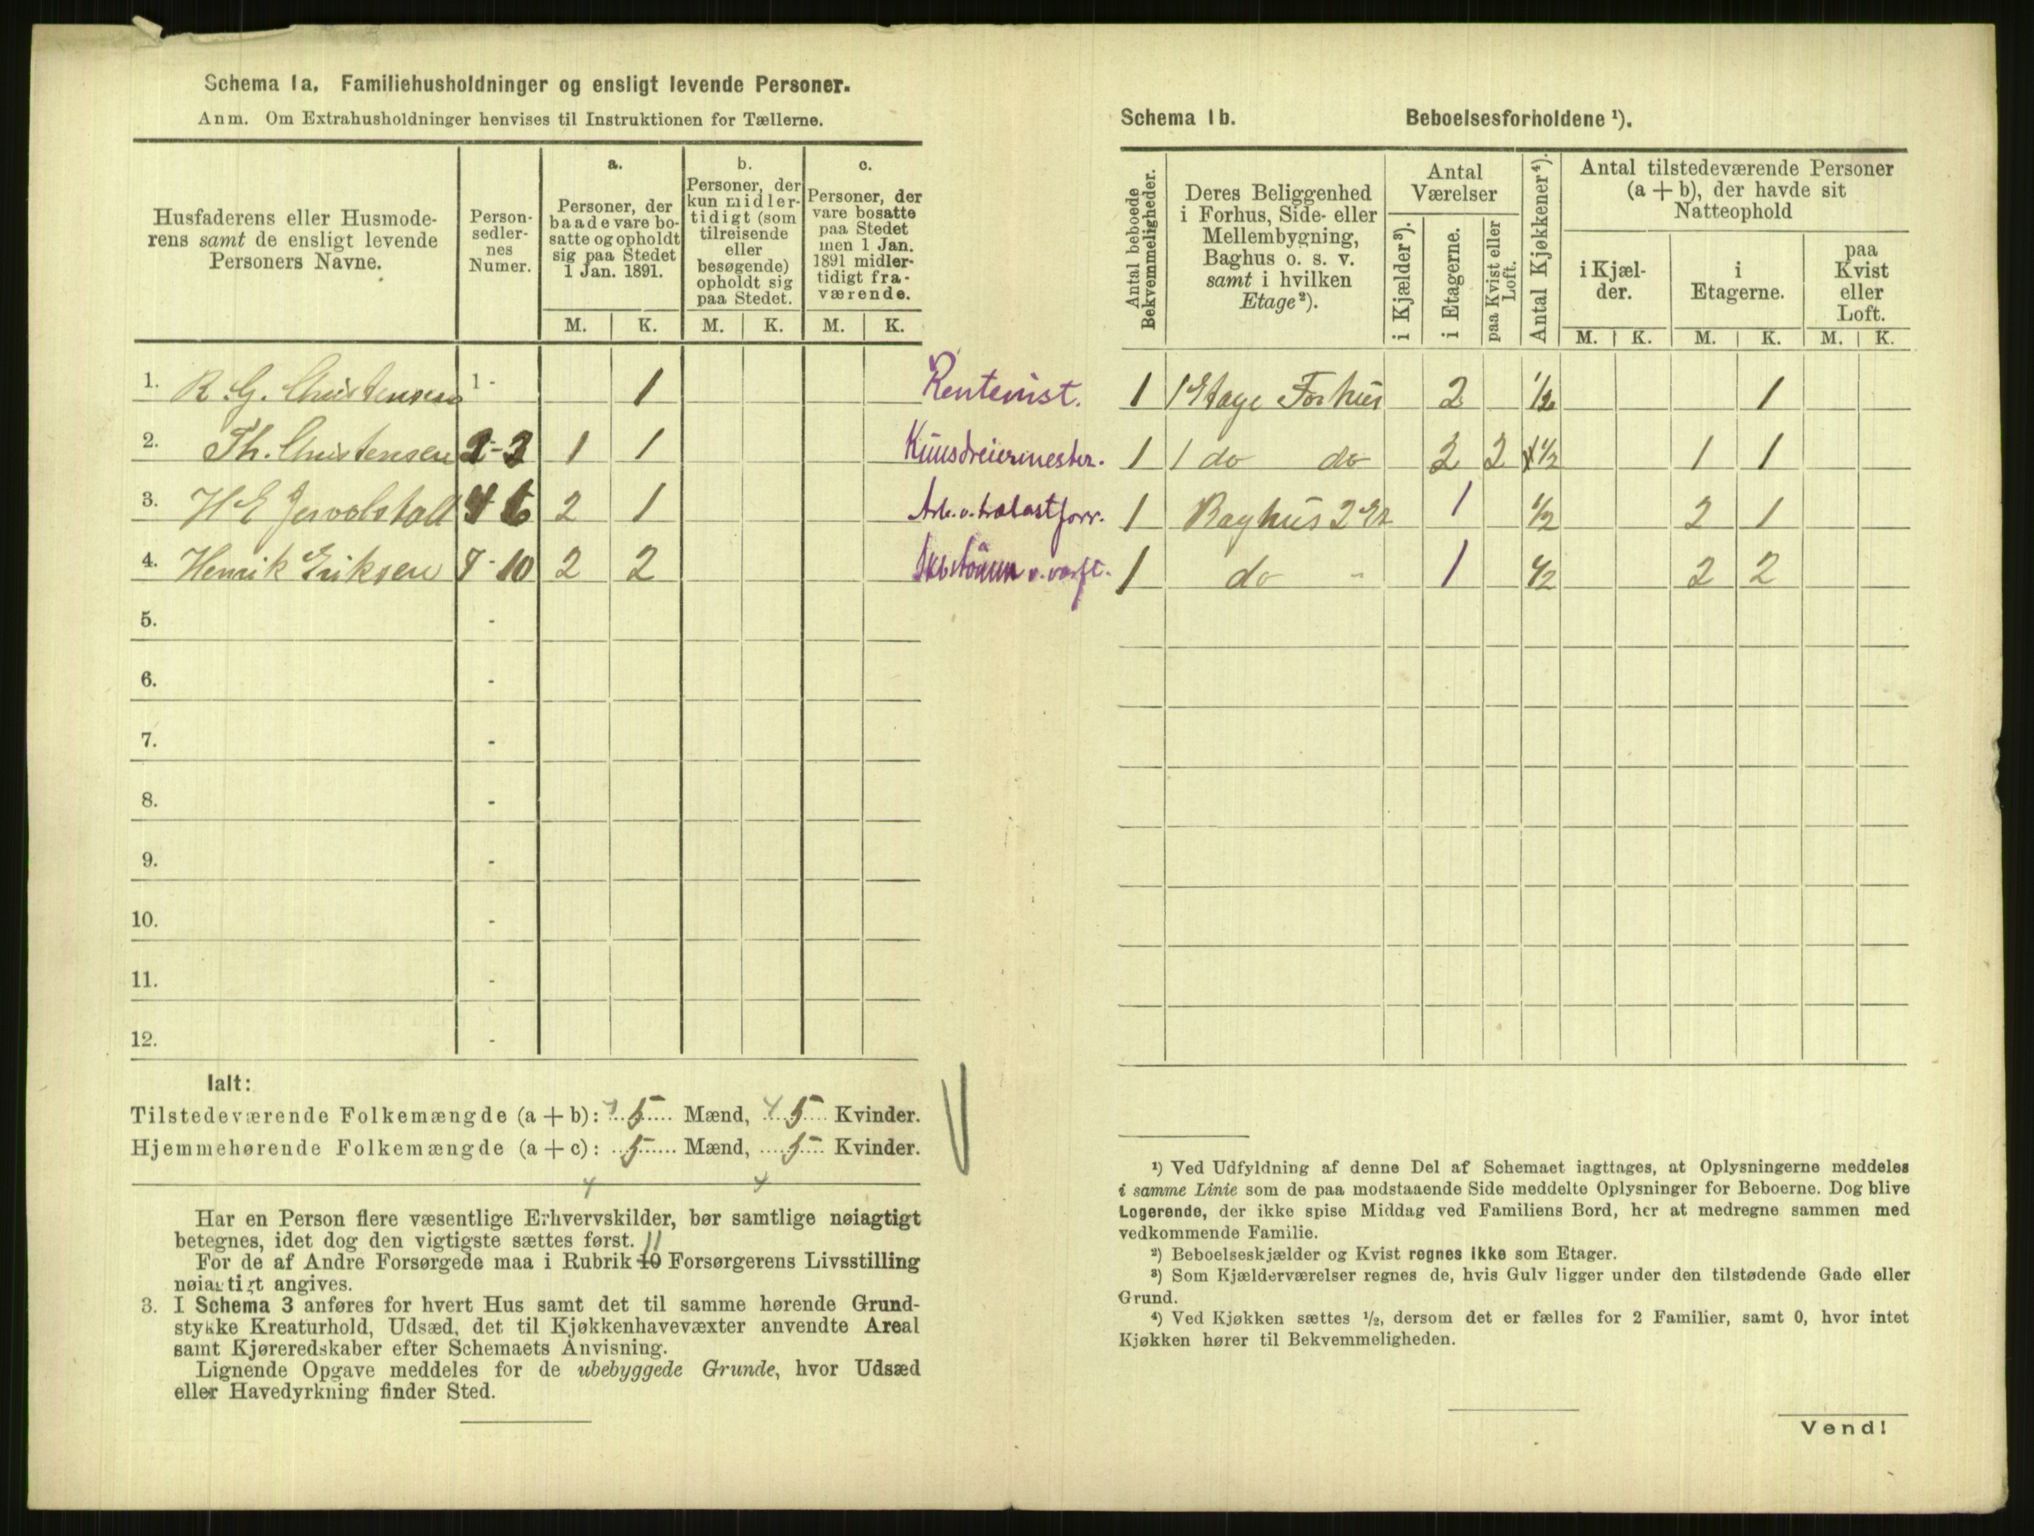 Schema 1a. Familiehusholdninger og ensligt levende Personer.
Anm. Om Extrahusholdninger henvises til Instruktionen for Tællerne.
Husfaderens eller Husmode-
rens samt de ensligt levende
Personers Navne.
Person-
sedler-
nes
Numer.
a.
Personer, der
baade vare bo-
satte og opholdt
sig paa Stedet
1 Jan. 1891.
b.
Personer, der
kun midler-
tidigt (som
tilreisende
eller
besøgende)
opholdt sig
paa Stedet.
c.
Personer, der
vare bosatte
paa Stedet
men 1 Jan.
1891 midler-
tidigt fra-
værende.
M. K. M. K. M. K.
1. R G. Christensen 1 - 1 Rentenist.
2. Th. Christensen 2-3 1 1 Kunsdreiermester.
3. H E 4-6 2 1 Arb. v. trælastforr.
4. Henrik Eriksen 7-10 2 2 v. værft.
5. -
6. -
7. -
8. -
9. -
10. -
11. -
12. -
Ialt:
Tilstedeværende Folkemængde (a + b): 5 Mænd, 4 5 Kvinder.
Hjemmehørende Folkemængde (a + c): 5 Mænd, 5 Kvinder.
4 4
Har en Person flere væsentlige Erhvervskilder, bør samtlige nøiagtigt
betegnes, idet dog den vigtigste sættes først.
11
For de af Andre Forsørgede maa i Rubrik 10 Forsørgerens Livsstilling
nøiagtigt angives.
3. I Schema 3 anføres for hvert Hus samt det til samme hørende Grund-
stykke Kreaturhold, Udsæd, det til Kjøkkenhavevæxter anvendte Areal
samt Kjøreredskaber efter Schemaets Anvisning.
Lignende Opgave meddeles for de ubebyggede Grunde, hvor Udsæd
eller Havedyrkning finder Sted.
Schema 1b. Beboelsesforholdene ¹).
Antal beboede
Bekvemmeligheder.
Deres Beliggenhed
i Forhus, Side- eller
Mellembygning,
Baghus o. s. v.
samt i hvilken
Etage²).
Antal
Værelser
i Kjælder³).
i Etagerne.
paa Kvist eller
Loft.
Antal Kjøkkener⁴).
Antal tilstedeværende Personer
(a + b), der havde sit
Natteophold
i Kjæl-
der.
i
Etagerne.
paa
Kvist
eller
Loft.
M. K. M. K. M. K.
1 1 Etage Forhus 2 1/2 1
1 1 do do 2 2 1/2 1 1
1 Baghus 2 Et 1 1/2 2 1
1 do " 1 1/2 2 2
¹) Ved Udfyldning af denne Del af Schemaet iagttages, at Oplysningerne meddeles
i samme Linie som de paa modstaaende Side meddelte Oplysninger for Beboerne. Dog blive
Logerende, der ikke spise Middag ved Familiens Bord, her at medregne sammen med
vedkommende Familie.
²) Beboelseskjælder og Kvist regnes ikke som Etager.
³) Som Kjælderværelser regnes de, hvis Gulv ligger under den tilstødende Gade eller
Grund.
⁴) Ved Kjøkken sættes ½, dersom det er fælles for 2 Familier, samt 0, hvor intet
Kjøkken hører til Bekvemmeligheden.
Vend!